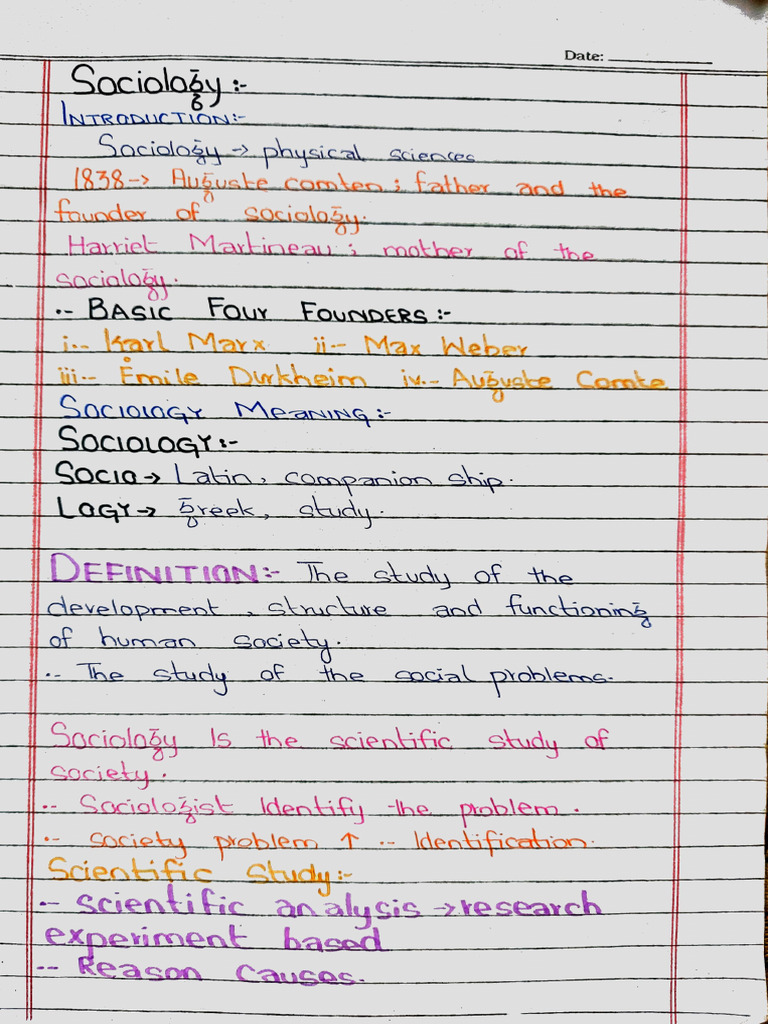 Date:
Sociology:-
INTRODUCTION:-
Sociology → physical sciences
1838 → Auguste comten; father and the
founder of sociology.
Harriet Martineau; mother of the
sociology.
·- BASIC FOUR FOUNDERS:-
i.- Karl Marx ii- Max Weber
iii- Émile Durkheim iv.- Auguste Comte
SOCIOLOGY MEANING:-
SOCIOLOGY:-
SOCIO → Latin, companion ship.
LOGY → Greek, study.
DEFINITION:- The study of the
development, structure and functioning
of human society.
·- The study of the social problems.
Sociology Is the scientific study of
society.
·- Sociologist Identify the problem.
·- society problem ↑ ·- Identification.
Scientific Study:-
·- scientific analysis → research
experiment based
·- Reason causes.